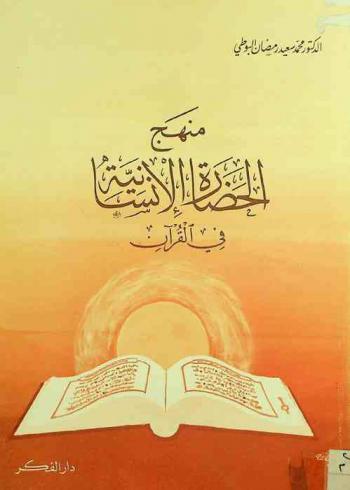 الدكتور محمد سعيد رمضان البوطي
منهج
الحضارة الإنسانية
في القرآن
دار الفكر